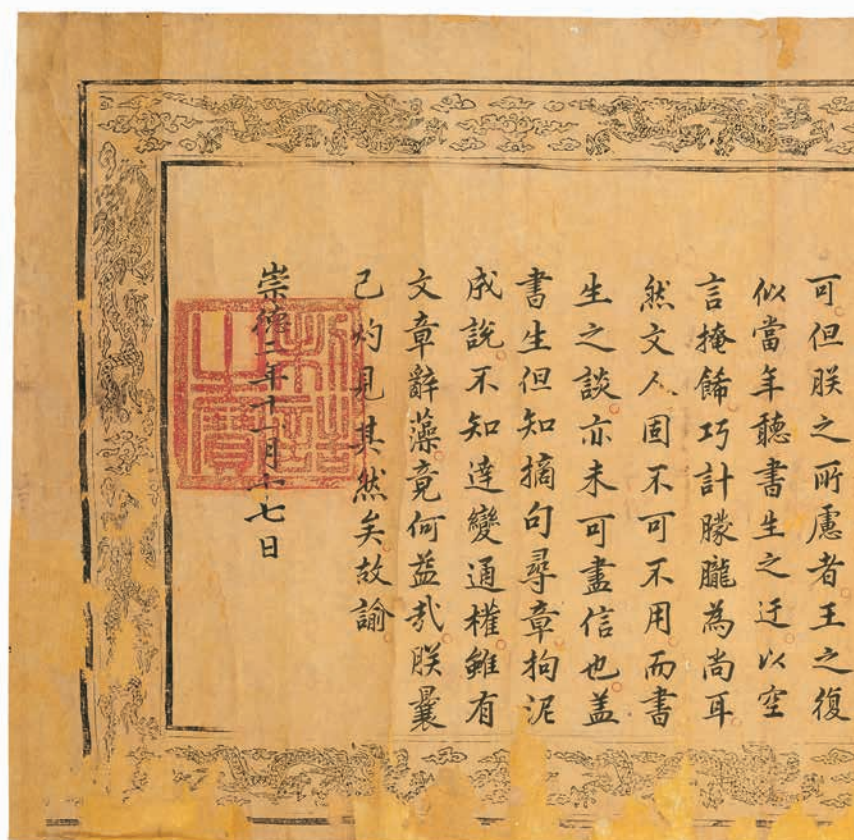 可但朕之所慮者王之復
似當年聽書生之迂以空
言掩餙巧計朦朧為尚耳
然文人固不可不用而書
生之談亦未可盡信也盖
書生但知摘句尋章拘泥
成說不知達變通權雖有
文章辭藻竟何益哉朕曩
已灼見其然矣故諭
崇德二年十一月十七日